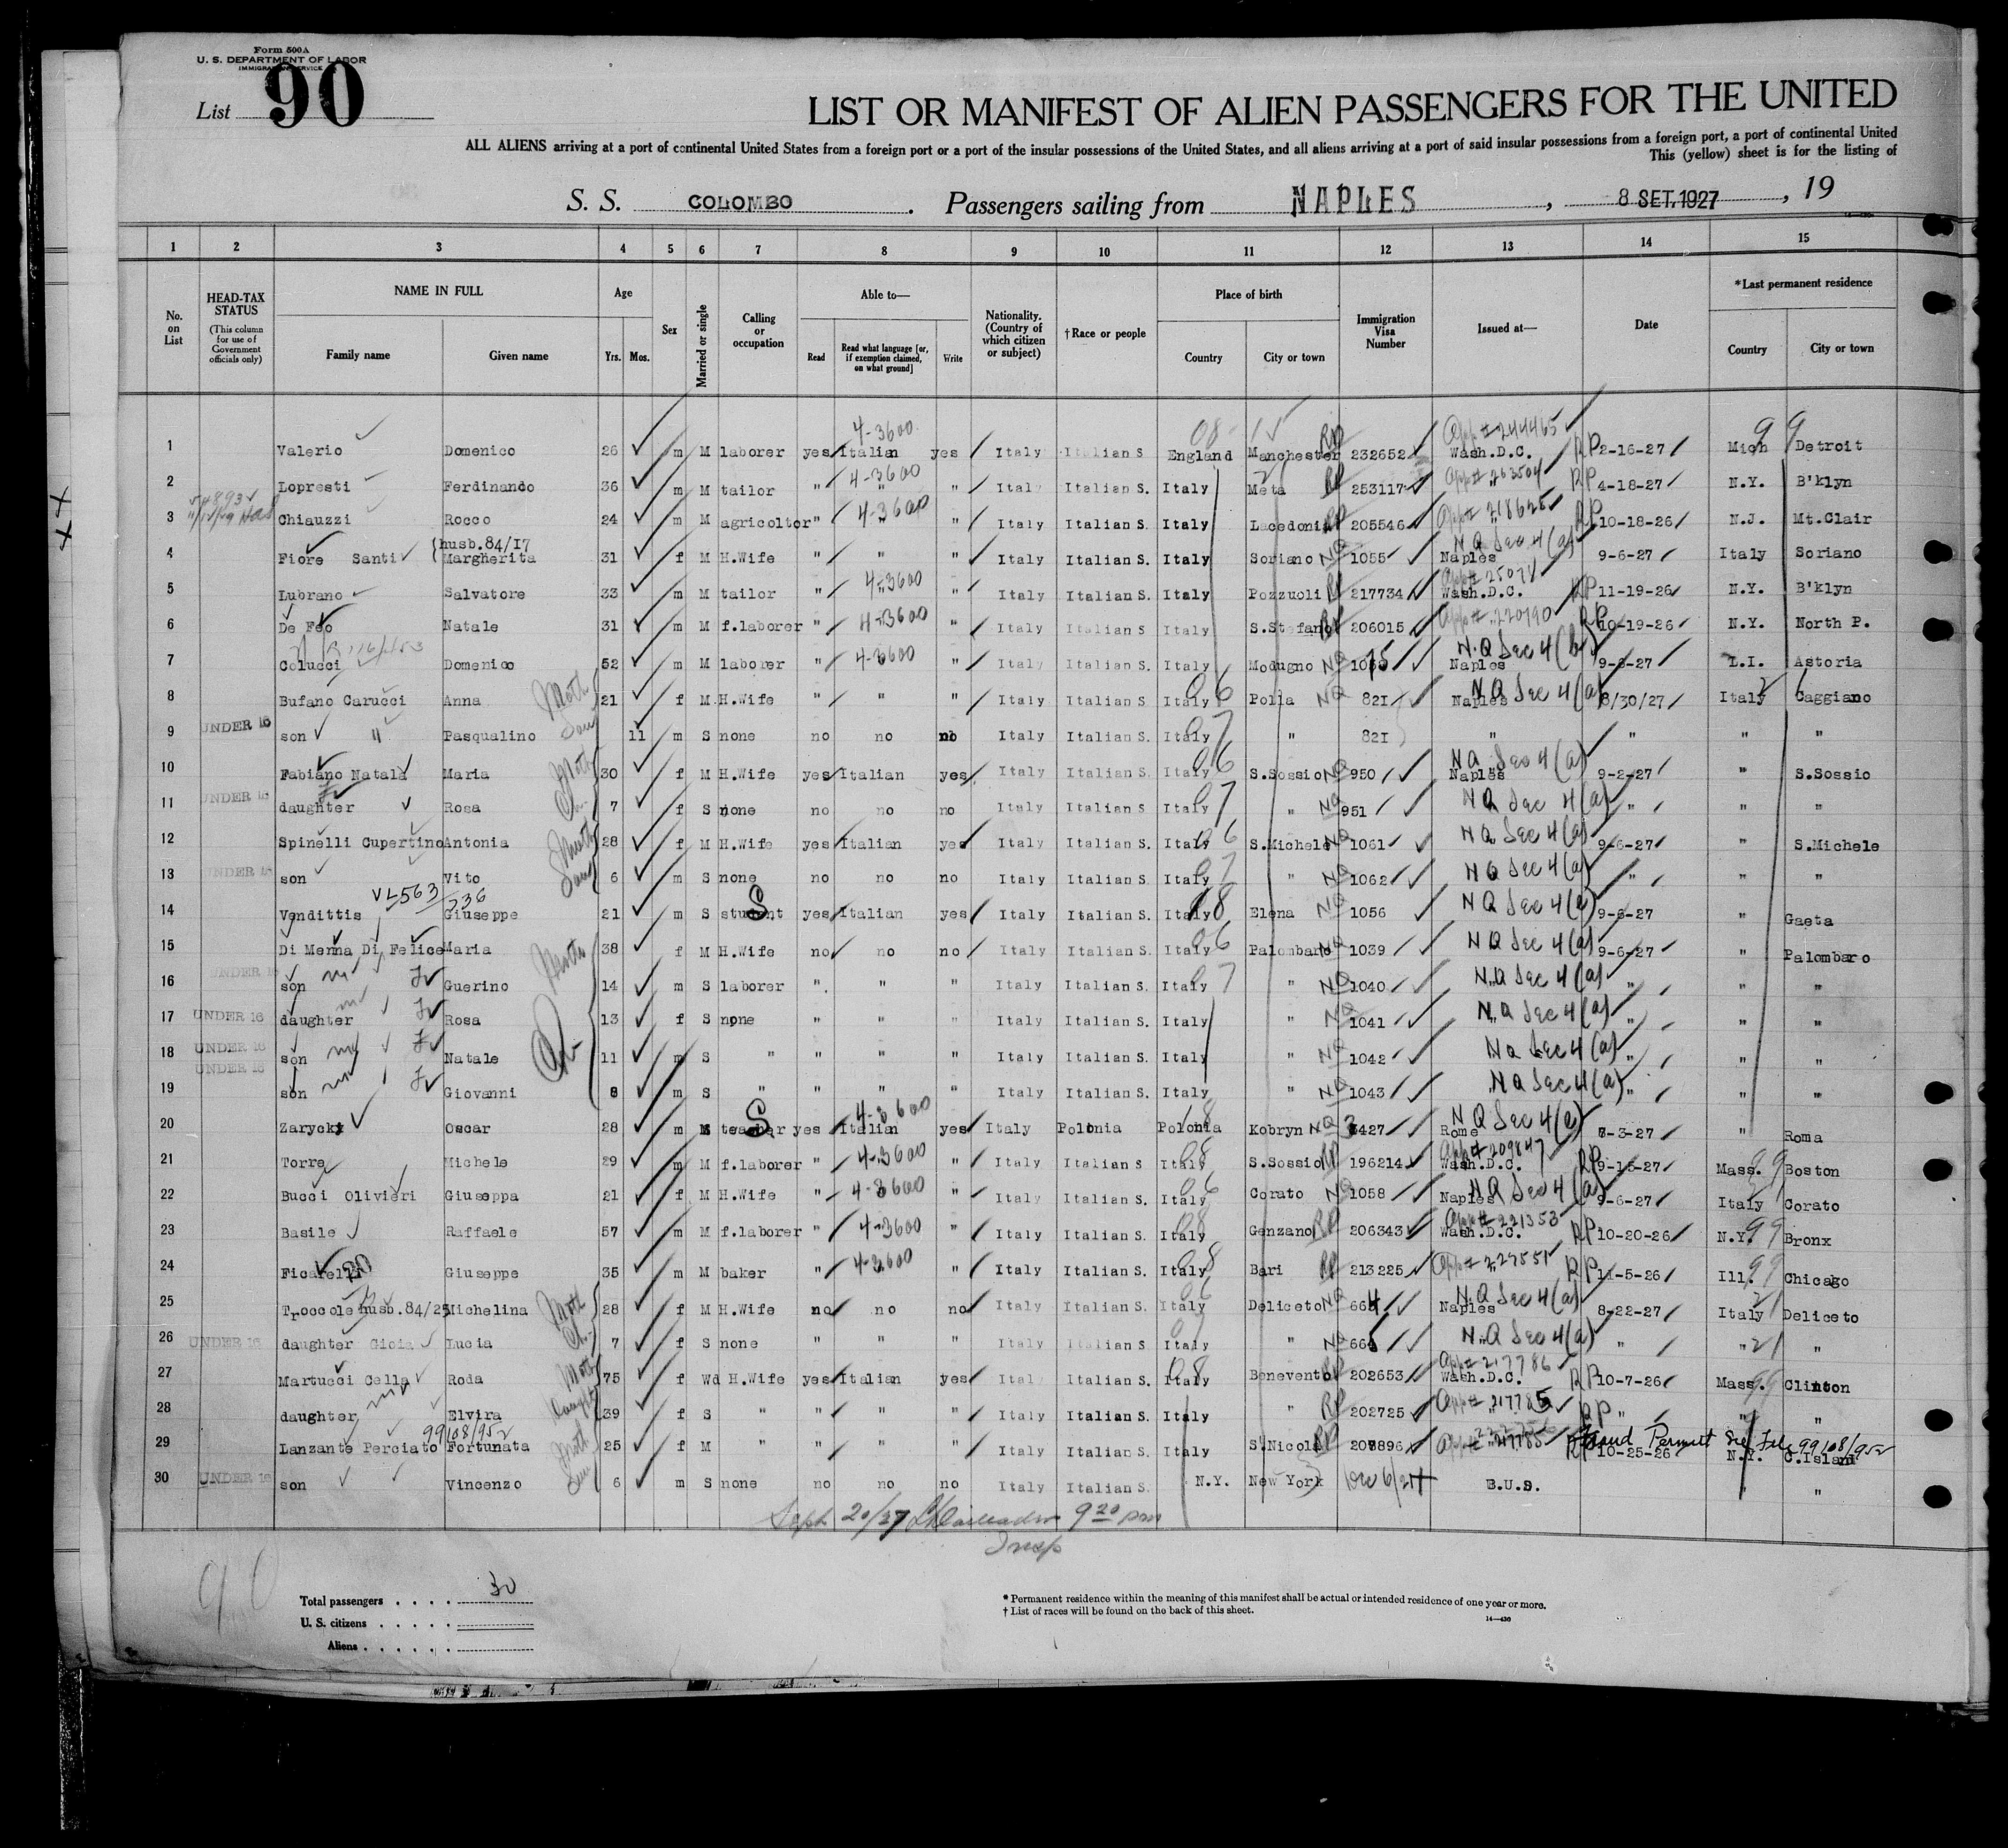 Form 500A
U. S. DEPARTMENT OF LABOR
IMMIGRATION SERVICE
List 90
LIST OR MANIFEST OF ALIEN PASSENGERS FOR THE UNITED
ALL ALIENS arriving at a port of continental United States from a foreign port or a port of the insular possessions of the United States, and all aliens arriving at a port of said insular possessions from a foreign port, a port of continental United
This (yellow) sheet is for the listing of
S. S. COLOMBO . Passengers sailing from NAPLES , 8 SET.1927 , 19
1 2 3 4 5 6 7 8 9 10 11 12 13 14 15
No. on List
HEAD-TAX STATUS (This column for use of Government officials only)
NAME IN FULL Family name Given name
Age Yrs. Mos.
Sex
Married or single
Calling or occupation
Able to— Read Read what language [or, if exemption claimed, on what ground] Write
Nationality. (Country of which citizen or subject)
†Race or people
Place of birth Country City or town
Immigration Visa Number
Issued at—
Date
*Last permanent residence Country City or town
1 Valerio Domenico 26 m M laborer yes Italian 4-3600 yes Italy Italian S England Manchester RP 232652 App# 244465 Wash.D.C. RP 2-16-27 Mich Detroit
2 Lopresti Ferdinando 36 m M tailor " 4-3600 " " Italy Italian S. Italy Meta RP 253117 App# 263504 " RP 4-18-27 N.Y. B'klyn
3 Chiauzzi Rocco 24 m M agricoltor " 4-3600 " " Italy Italian S. Italy Lacedonia RP 205546 App# 218625 " RP 10-18-26 N.J. Mt.Clair
4 Fiore Santi husb.84/17 Margherita 31 f M H.Wife " " " Italy Italian S. Italy Soriano NQ 1055 NQ Sec 4(a) Naples 9-6-27 Italy Soriano
5 Lubrano Salvatore 33 m M tailor " 4-3600 " " Italy Italian S. Italy Pozzuoli RP 217734 Wash.D.C. RP 11-19-26 N.Y. B'klyn
6 De Feo Natale 31 m M f.laborer " 4-3600 " Italy Italian S Italy S.Stefano RP 206015 App# 220790 RP 10-19-26 N.Y. North P.
7 Colucci Domenico 52 m M laborer " 4-3600 " Italy Italian S Italy Modugno NQ NQ Sec 4(b) Naples 9-6-27 L.I. Astoria
8 Bufano Carucci Anna Moth 21 f M H.Wife " " " Italy Italian S Italy 06 Polla NQ 821 Naples NQ Sec 4(a) 8/30/27 Italy Caggiano
9 UNDER 16 son " Pasqualino 11 m S none no no no Italy Italian S. Italy 07 " 821 " " " "
10 Fabiano Natala Maria Moth 30 f M H.Wife yes Italian yes Italy Italian S. Italy 06 S.Sossio NQ 950 NQ Sec 4(a) Naples 9-2-27 " S.Sossio
11 UNDER 16 daughter Rosa Ch. 7 f S none no no no Italy Italian S Italy 07 " NQ 951 NQ Sec 4(a) " " "
12 Spinelli Cupertino Antonia Moth 28 f M H.Wife yes Italian yes Italy Italian S. Italy 06 S.Michele NQ 1061 NQ Sec 4(a) 9-6-27 " S.Michele
13 UNDER 16 son Vito 6 m S none no no no Italy Italian S. Italy 07 " NQ 1062 NQ Sec 4(a) " " "
14 Vendittis Giuseppe 21 m S student S yes Italian yes Italy Italian S. Italy 08 Elena NQ 1056 NQ Sec 4(a) 9-6-27 " Gaeta
15 Di Menna Di Felice Maria 38 f M H.Wife no no no Italy Italian S. Italy 06 Palombaro NQ 1039 NQ Sec 4(a) 9-6-27 " Palombaro
16 UNDER 16 son m Guerino 14 m S laborer " " " Italy Italian S. Italy 07 " NQ 1040 NQ Sec 4(a) " " "
17 UNDER 16 daughter m Rosa 13 f S none " " " Italy Italian S. Italy " NQ 1041 NQ Sec 4(a) " " "
18 UNDER 16 son Natale Ch 11 m S " " " " Italy Italian S. Italy " NQ 1042 NQ Sec 4(a) " " "
19 UNDER 16 son Giovanni 8 m S " " " " Italy Italian S. Italy " NQ 1043 NQ Sec 4(a) " " "
20 Zarycki Oscar 28 m teacher S yes Italian yes Italy Polonia Polonia 08 Kobryn NQ 3427 NQ Sec 4(e) Rome " Roma
21 Torre Michele 29 m M f.laborer " 4-3600 " Italy Italian S Italy 08 S.Sossio RP 196214 App# 209847 Wash.D.C. RP 9-15-27 Mass. 99 Boston
22 Bucci Olivieri Giuseppa 21 f M H.Wife " " Italy Italian S. Italy 06 Corato NQ 1058 NQ Sec 4(a) Naples 9-6-27 Italy Corato
23 Basile Raffaele 57 m M f.laborer " 4-3600 " Italy Italian S. Italy 08 Genzano RP 206343 App# 221353 Wash.D.C. RP 10-20-26 N.Y. 99 Bronx
24 Ficarelli Giuseppe 35 m M baker " 4-3600 " Italy Italian S. Italy 08 Bari RP 213225 RP 11-5-26 Ill. 99 Chicago
25 Troccole husb.84/25 Michelina Moth 28 f M H.Wife no no no Italy Italian S. Italy 06 Deliceto NQ 664 NQ Sec 4(a) Naples 8-22-27 Italy Deliceto
26 UNDER 16 daughter Gioia Lucia Ch. 7 f S none " " " Italy Italian S Italy 07 " NQ 665 NQ Sec 4(a) " " "
27 Martucci Cella Roda Moth 75 f Wd H.Wife yes Italian yes Italy Italian S. Italy 08 Benevento RP 202653 App# 217786 Wash.D.C. RP 10-7-26 Mass. 99 Clinton
28 daughter Elvira 39 f S " " " " Italy Italian S. Italy " RP 202725 App# 217785 RP " " "
29 Lanzante Perciato 99108/952 Fortunata Moth 25 f M " " " " Italy Italian S. Italy S.Nicola RP 10-25-26 Permit See File 99108/952 N.Y. C.Island
30 UNDER 16 son Vincenzo 6 m S none no no no Italy Italian S. N.Y. New York Dec 6/21 B.U.S. " "
Sept 20/27 9 20 pm
Insp
90
Total passengers . . . . 30
U. S. citizens . . . . .
Aliens . . . . . .
* Permanent residence within the meaning of this manifest shall be actual or intended residence of one year or more.
† List of races will be found on the back of this sheet.
14—430